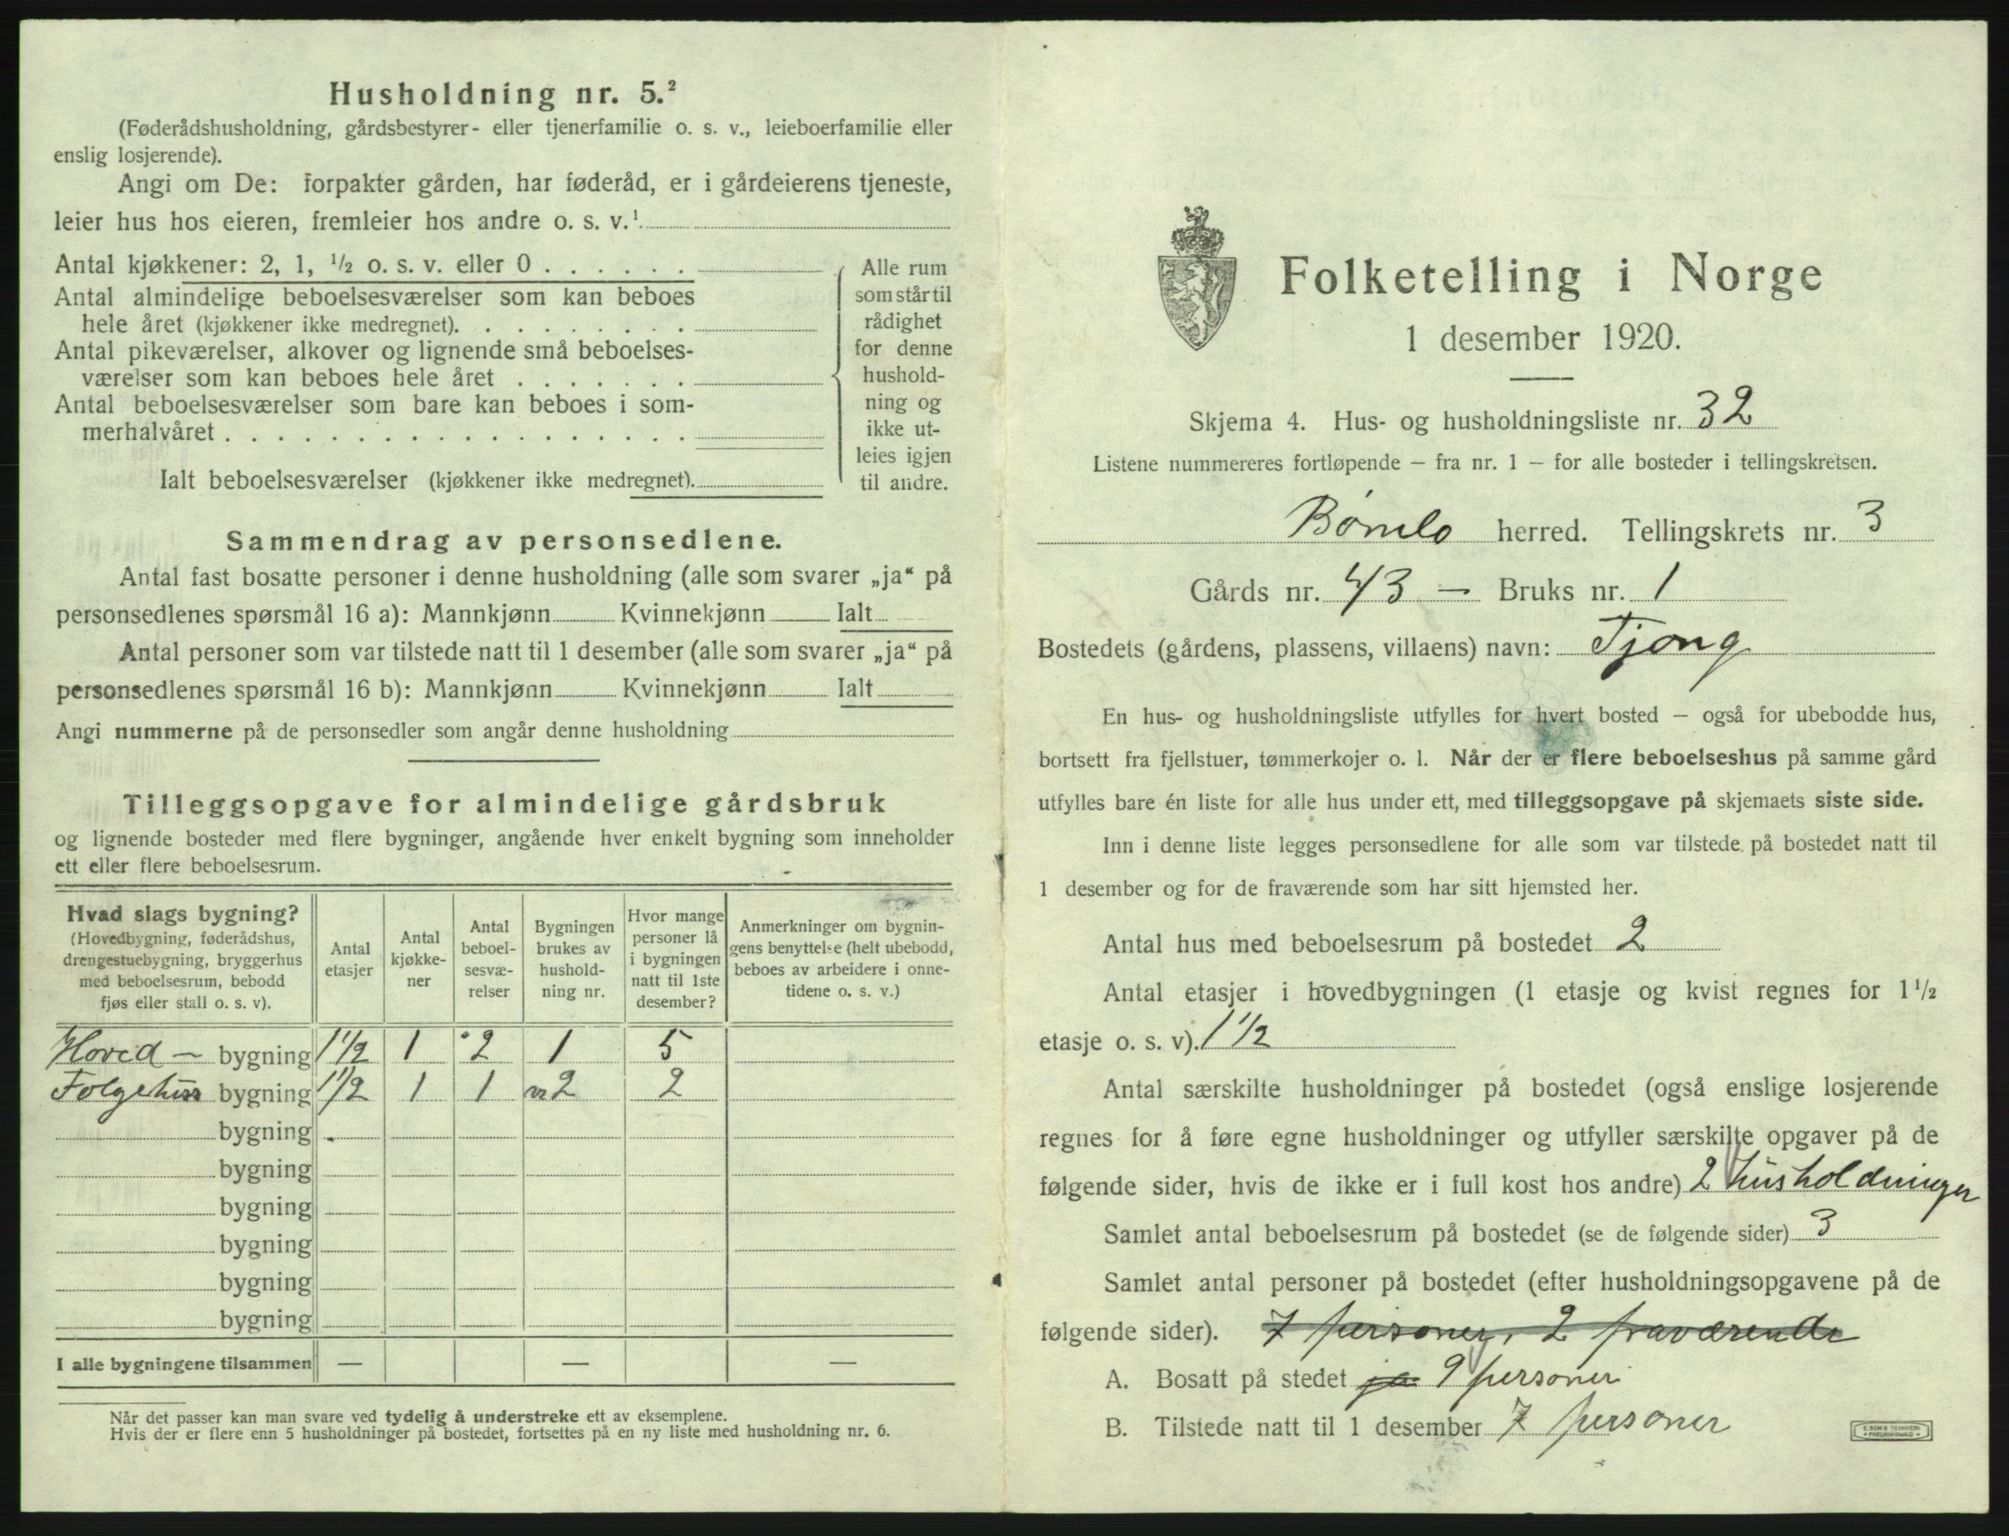 Husholdning nr. 5.²
(Føderådshusholdning, gårdsbestyrer- eller tjenerfamilie o. s. v., leieboerfamilie eller
enslig losjerende).
Angi om De: forpakter gården, har føderåd, er i gårdeierens tjeneste,
leier hus hos eieren, fremleier hos andre o. s. v.¹
Antal kjøkkener: 2, 1, ½ o. s. v. eller 0 . . . . . .
Antal almindelige beboelsesværelser som kan beboes
hele året (kjøkkener ikke medregnet). . . . . . . . .
Antal pikeværelser, alkover og lignende små beboelses-
værelser som kan beboes hele året . . . . . . .
Antal beboelsesværelser som bare kan beboes i som-
merhalvåret . . . . . . . . . . . . . . . . . .
Ialt beboelsesværelser (kjøkkener ikke medregnet).
Alle rum
som står til
rådighet
for denne
hushold-
ning og
ikke ut-
leies igjen
til andre.
Sammendrag av personsedlene.
Antal fast bosatte personer i denne husholdning (alle som svarer „ja“ på
personsedlenes spørsmål 16 a): Mannkjønn Kvinnekjønn Ialt
Antal personer som var tilstede natt til 1 desember (alle som svarer „ja“ på
personsedlenes spørsmål 16 b): Mannkjønn Kvinnekjønn Ialt
Angi nummerne på de personsedler som angår denne husholdning
Tilleggsopgave for almindelige gårdsbruk
og lignende bosteder med flere bygninger, angående hver enkelt bygning som inneholder
ett eller flere beboelsesrum.
Hvad slags bygning?
(Hovedbygning, føderådshus,
drengestuebygning, bryggerhus
med beboelsesrum, bebodd
fjøs eller stall o. s. v).
Antal
etasjer
Antal
kjøkke-
ner
Antal
beboel-
sesvæ-
relser
Bygningen
brukes av
hushold-
ning nr.
Hvor mange
personer lå
i bygningen
natt til 1ste
desember?
Anmerkninger om bygnin-
gens benyttelse (helt ubebodd,
beboes av arbeidere i onne-
tidene o. s. v.)
Hoved – bygning 1½ 1 2 1 5
Folgehus bygning 1½ 1 1 2 2
bygning
bygning
bygning
bygning
bygning
bygning
I alle bygningene tilsammen — — —
Når det passer kan man svare ved tydelig å understreke ett av eksemplene.
Hvis der er flere enn 5 husholdninger på bostedet, fortsettes på en ny liste med husholdning nr. 6.
Folketelling i Norge
1 desember 1920.
Skjema 4. Hus- og husholdningsliste nr. 32
Listene nummereres fortløpende – fra nr. 1 – for alle bosteder i tellingskretsen.
Bømlo herred. Tellingskrets nr. 3
Gårds nr. 43 – Bruks nr. 1
Bostedets (gårdens, plassens, villaens) navn: Tjong
En hus- og husholdningsliste utfylles for hvert bosted – også for ubebodde hus,
bortsett fra fjellstuer, tømmerkojer o. l. Når der er flere beboelseshus på samme gård
utfylles bare én liste for alle hus under ett, med tilleggsopgave på skjemaets siste side.
Inn i denne liste legges personsedlene for alle som var tilstede på bostedet natt til
1 desember og for de fraværende som har sitt hjemsted her.
Antal hus med beboelsesrum på bostedet 2
Antal etasjer i hovedbygningen (1 etasje og kvist regnes for 1½
etasje o. s. v). 1½
Antal særskilte husholdninger på bostedet (også enslige losjerende
regnes for å føre egne husholdninger og utfyller særskilte opgaver på de
følgende sider, hvis de ikke er i full kost hos andre) 2 husholdninger
Samlet antal beboelsesrum på bostedet (se de følgende sider) 3
Samlet antal personer på bostedet (efter husholdningsopgavene på de
følgende sider). 7 personer, 2 fraværende
A. Bosatt på stedet ja 9 personer
B. Tilstede natt til 1 desember 7 personer